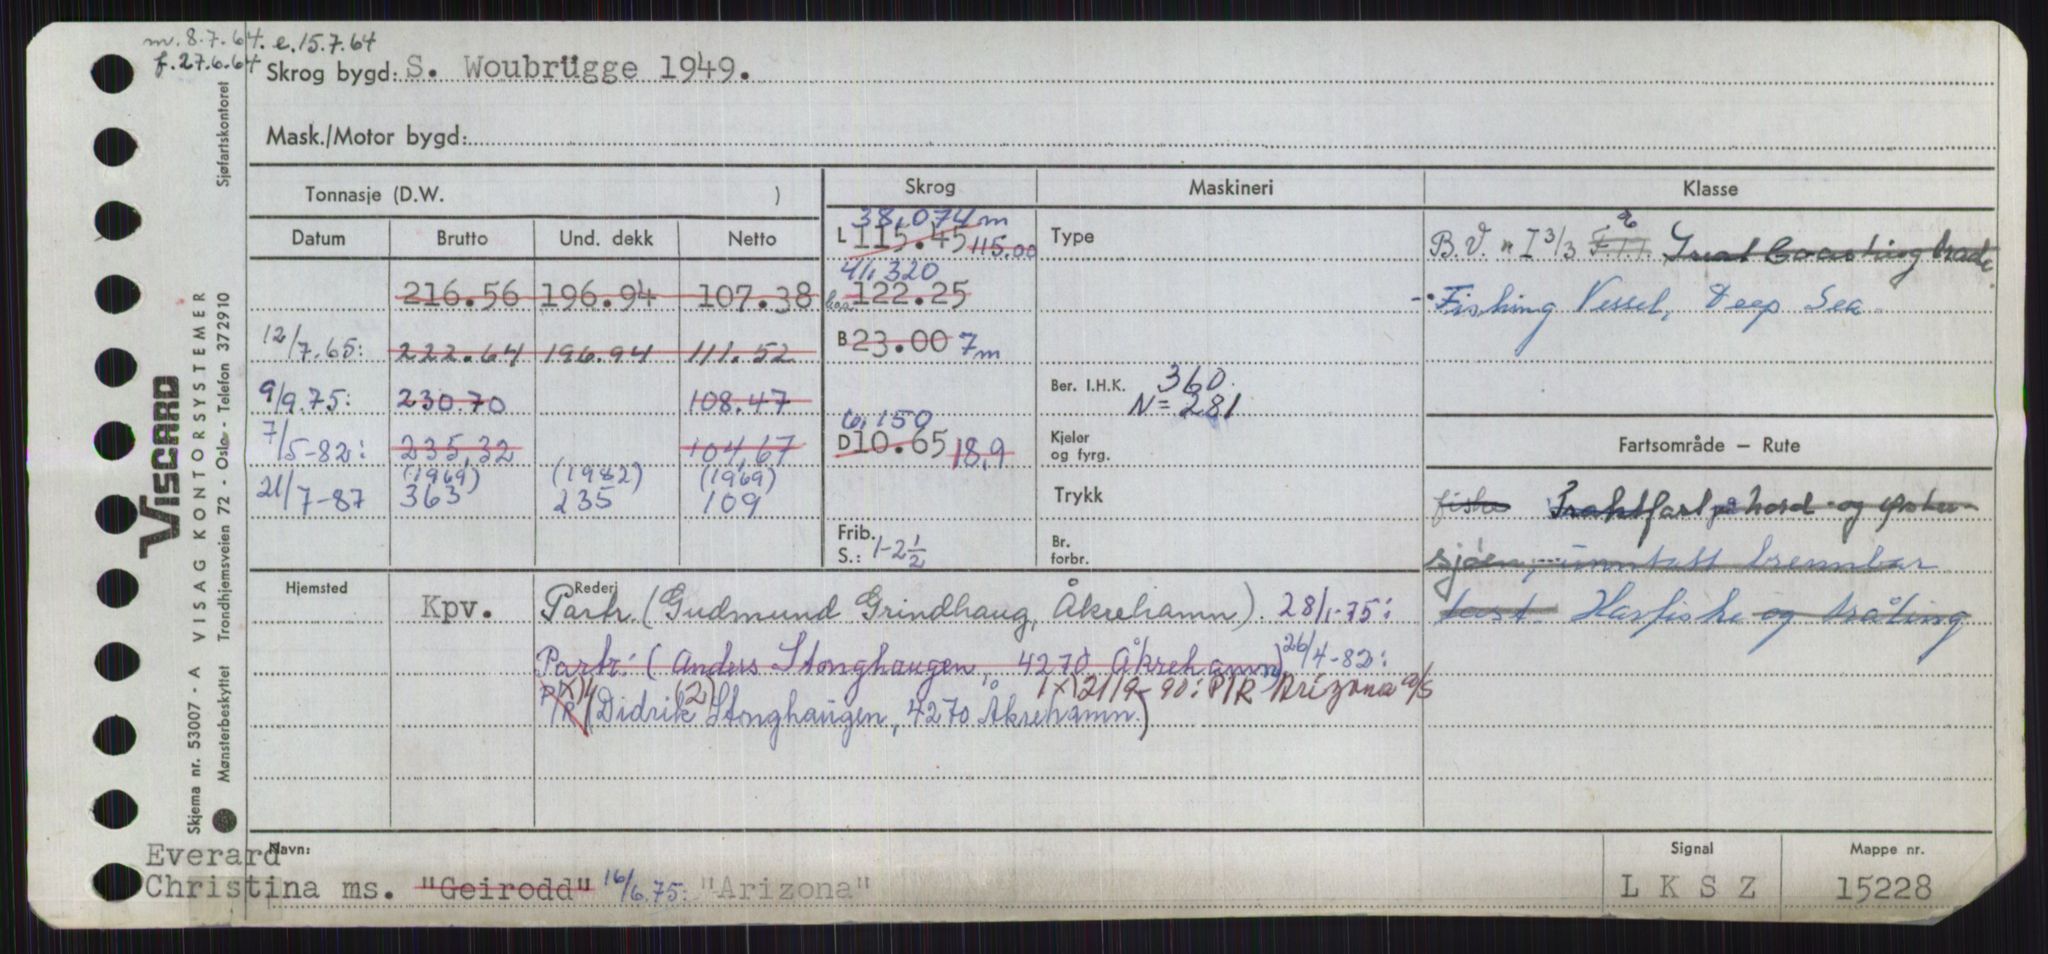 m. 8.7.64. e. 15.7.64
f. 27.6.64
Skrog bygd: S. Woubrügge 1949.
Mask./Motor bygd:
Tonnasje (D.W. )
Skrog Maskineri Klasse
Datum Brutto Und. dekk Netto
38,074 m
L 115.45 115.00
Type
B.V. I 3/3 Coasting trade
216.56 196.94 107.38
41,320
122.25
Fishing Vessel, Deep Sea
12/7.65: 222.64 196.94 111.52
B 23.00 7m
9/9.75: 230.70 108.47
Ber. I.H.K. 360.
N = 281
7/5-82: 235,32 104,67
6,150
D 10.65 18,9
Kjeler og fyrg.
Fartsområde — Rute
(1969) (1982) (1969)
21/7-87 363 235 109
Trykk
fiske Fraktfart på Nord- og Øster-
Frib.
S.: 1-2 1/2
Br. forbr.
sjøen, unntatt brennbar
Hjemsted Rederi
Kpv. Partr. (Gudmund Grindhaug, Åkrehamn). 28/1-75:
last. Havfiske og tråling
Partr: (Anders Stonghaugen, 4270 Åkrehamn) 26/4-82:
1x) 21/9-90: P/R Arizona a/s
P/R (Didrik (2) Stonghaugen, 4270 Åkrehamn)
Everard
Navn:
Christina ms. "Geirodd" 16/6.75: "Arizona"
Signal
L K S Z
Mappe nr.
15228
VISCARD
Skjema nr. 53007 - A VISAG KONTORSYSTEMER Sjøfartskontoret
Mønsterbeskyttet Trondhjemsveien 72 - Oslo - Telefon 372910